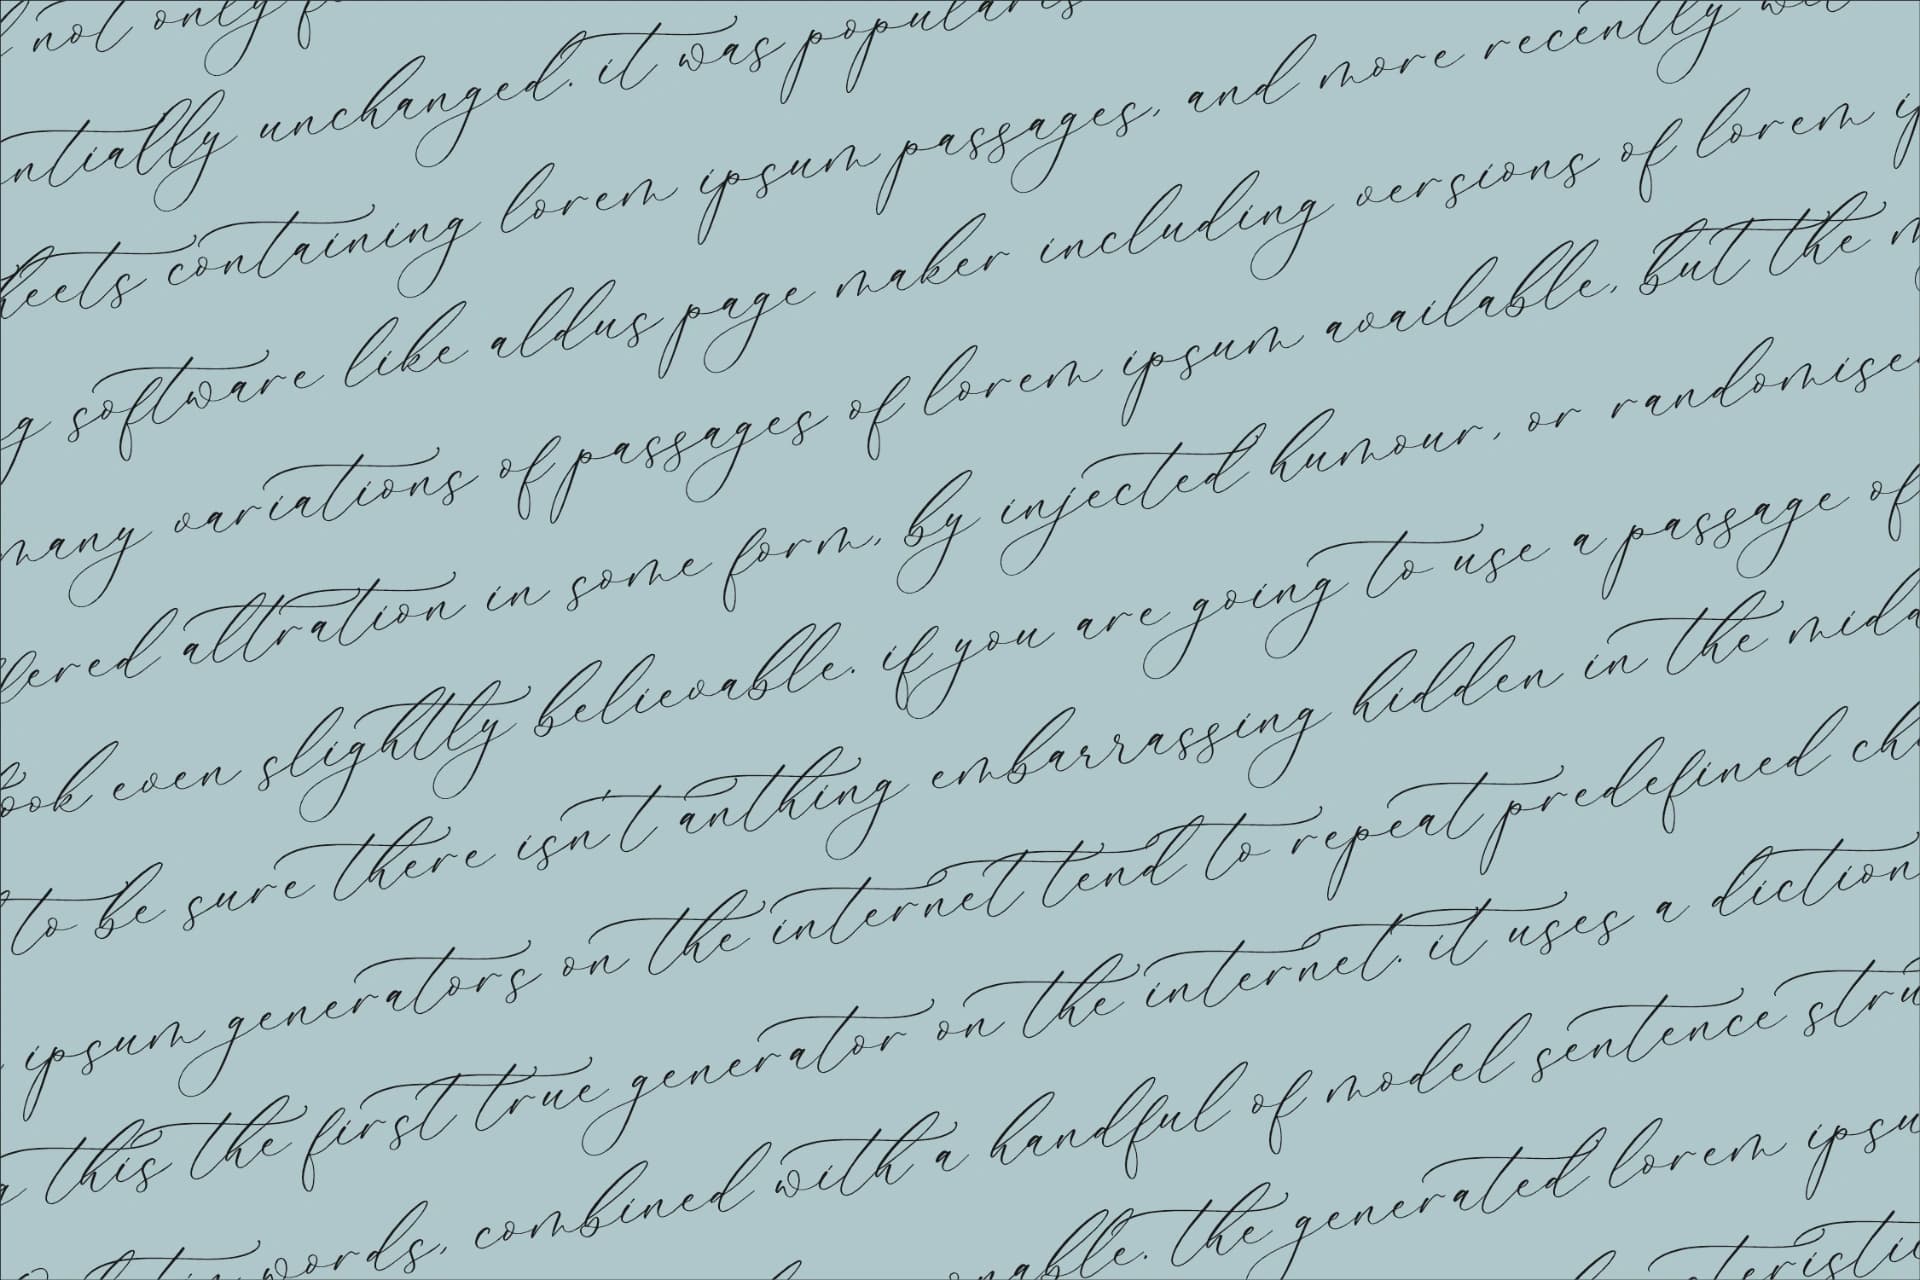 not only
ntially unchanged. it was popularis
heets containing lorem ipsum passages, and more recently
g software like aldus page maker including versions of lorem ip
many variations of passages of lorem ipsum available, but the m
fered altration in some form, by injected humour, or randomise
ook even slightly believable. if you are going to use a passage of
to be sure there isn't anthing embarrassing hidden in the midd
ipsum generators on the internet tend to repeat predefined chu
this the first true generator on the internet. it uses a diction
words, combined with a handful of model sentence stru
nable. the generated lorem ipsu
teristic